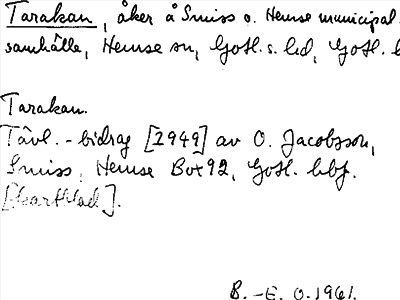 Tarakan, åker å Smiss o. Hemse municipal-
samhälle, Hemse sn, Gotl. s. hd, Gotl. l
Tarakan.
Tävl.-bidrag [1949] av O. Jacobsson,
Smiss, Hemse Box 92, Gotl. hbf.
[Kartblad].
B.-E. O. 1961.